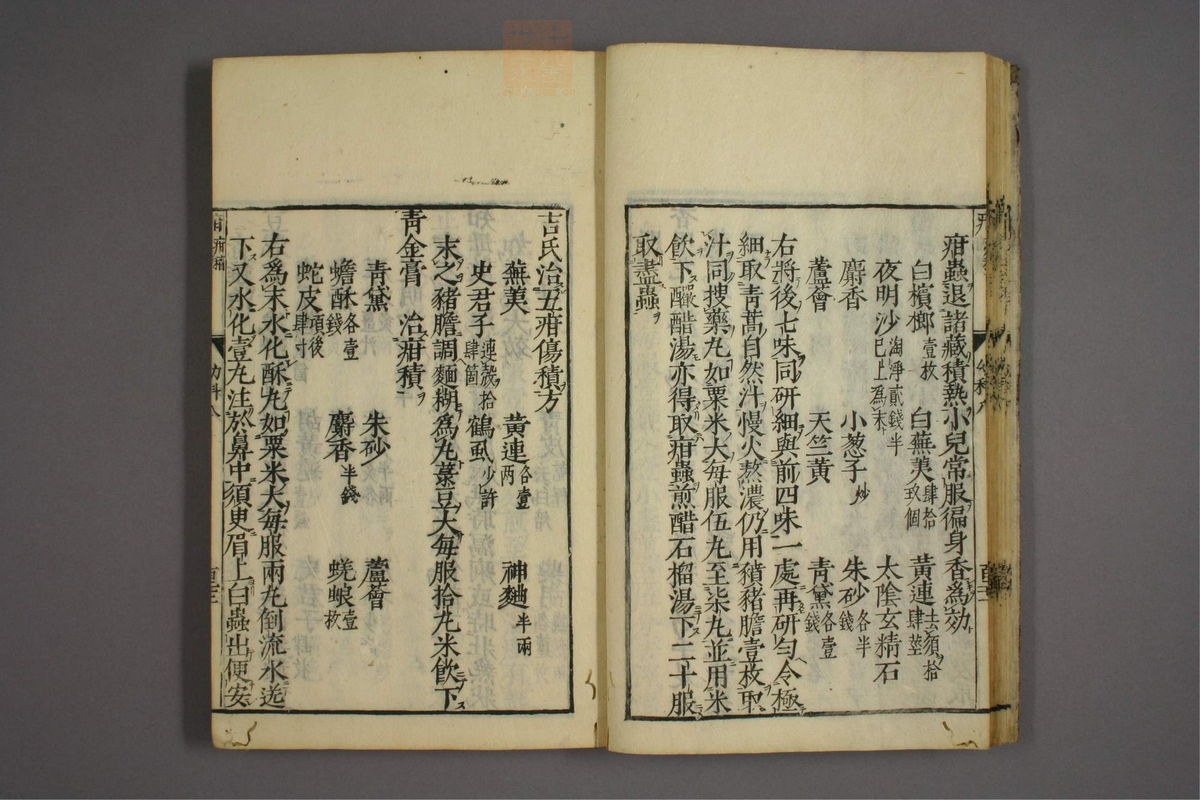 疳蟲退諸藏積熱小兒常服徧身香為効
白檳榔壹枚 白蕪荑肆拾玖個 黃連去須拾肆莖
夜明沙淘淨貳錢半已上為末 太陰玄精石
麝香 小葱子炒 朱砂各半錢
蘆薈 天竺黃 青黛各壹錢
右將後七味同研細與前四味一處再研勻令極
細取青蒿自然汁慢火熬濃仍用豶豬膽壹枚取
汁同搜藥丸如粟米大每服伍丸至柒丸並用米
飲下醶醋湯亦得取疳蟲煎醋石榴湯下二十服
取盡蟲
吉氏治五疳傷積方
蕪荑 黃連各壹兩 神麯半兩
史君子連殼拾肆箇 鶴虱少許
末之豬膽調麵糊為丸菉豆大每服拾丸米飲下
青金膏 治疳積
青黛 朱砂 蘆薈
蟾酥各壹錢 麝香半錢 蜣蜋壹枚
蛇皮項後肆寸
右為末水化酥丸如粟米大每服兩丸倒流水送
下又水化壹丸注於鼻中須臾眉上白蟲出便安
幼科八